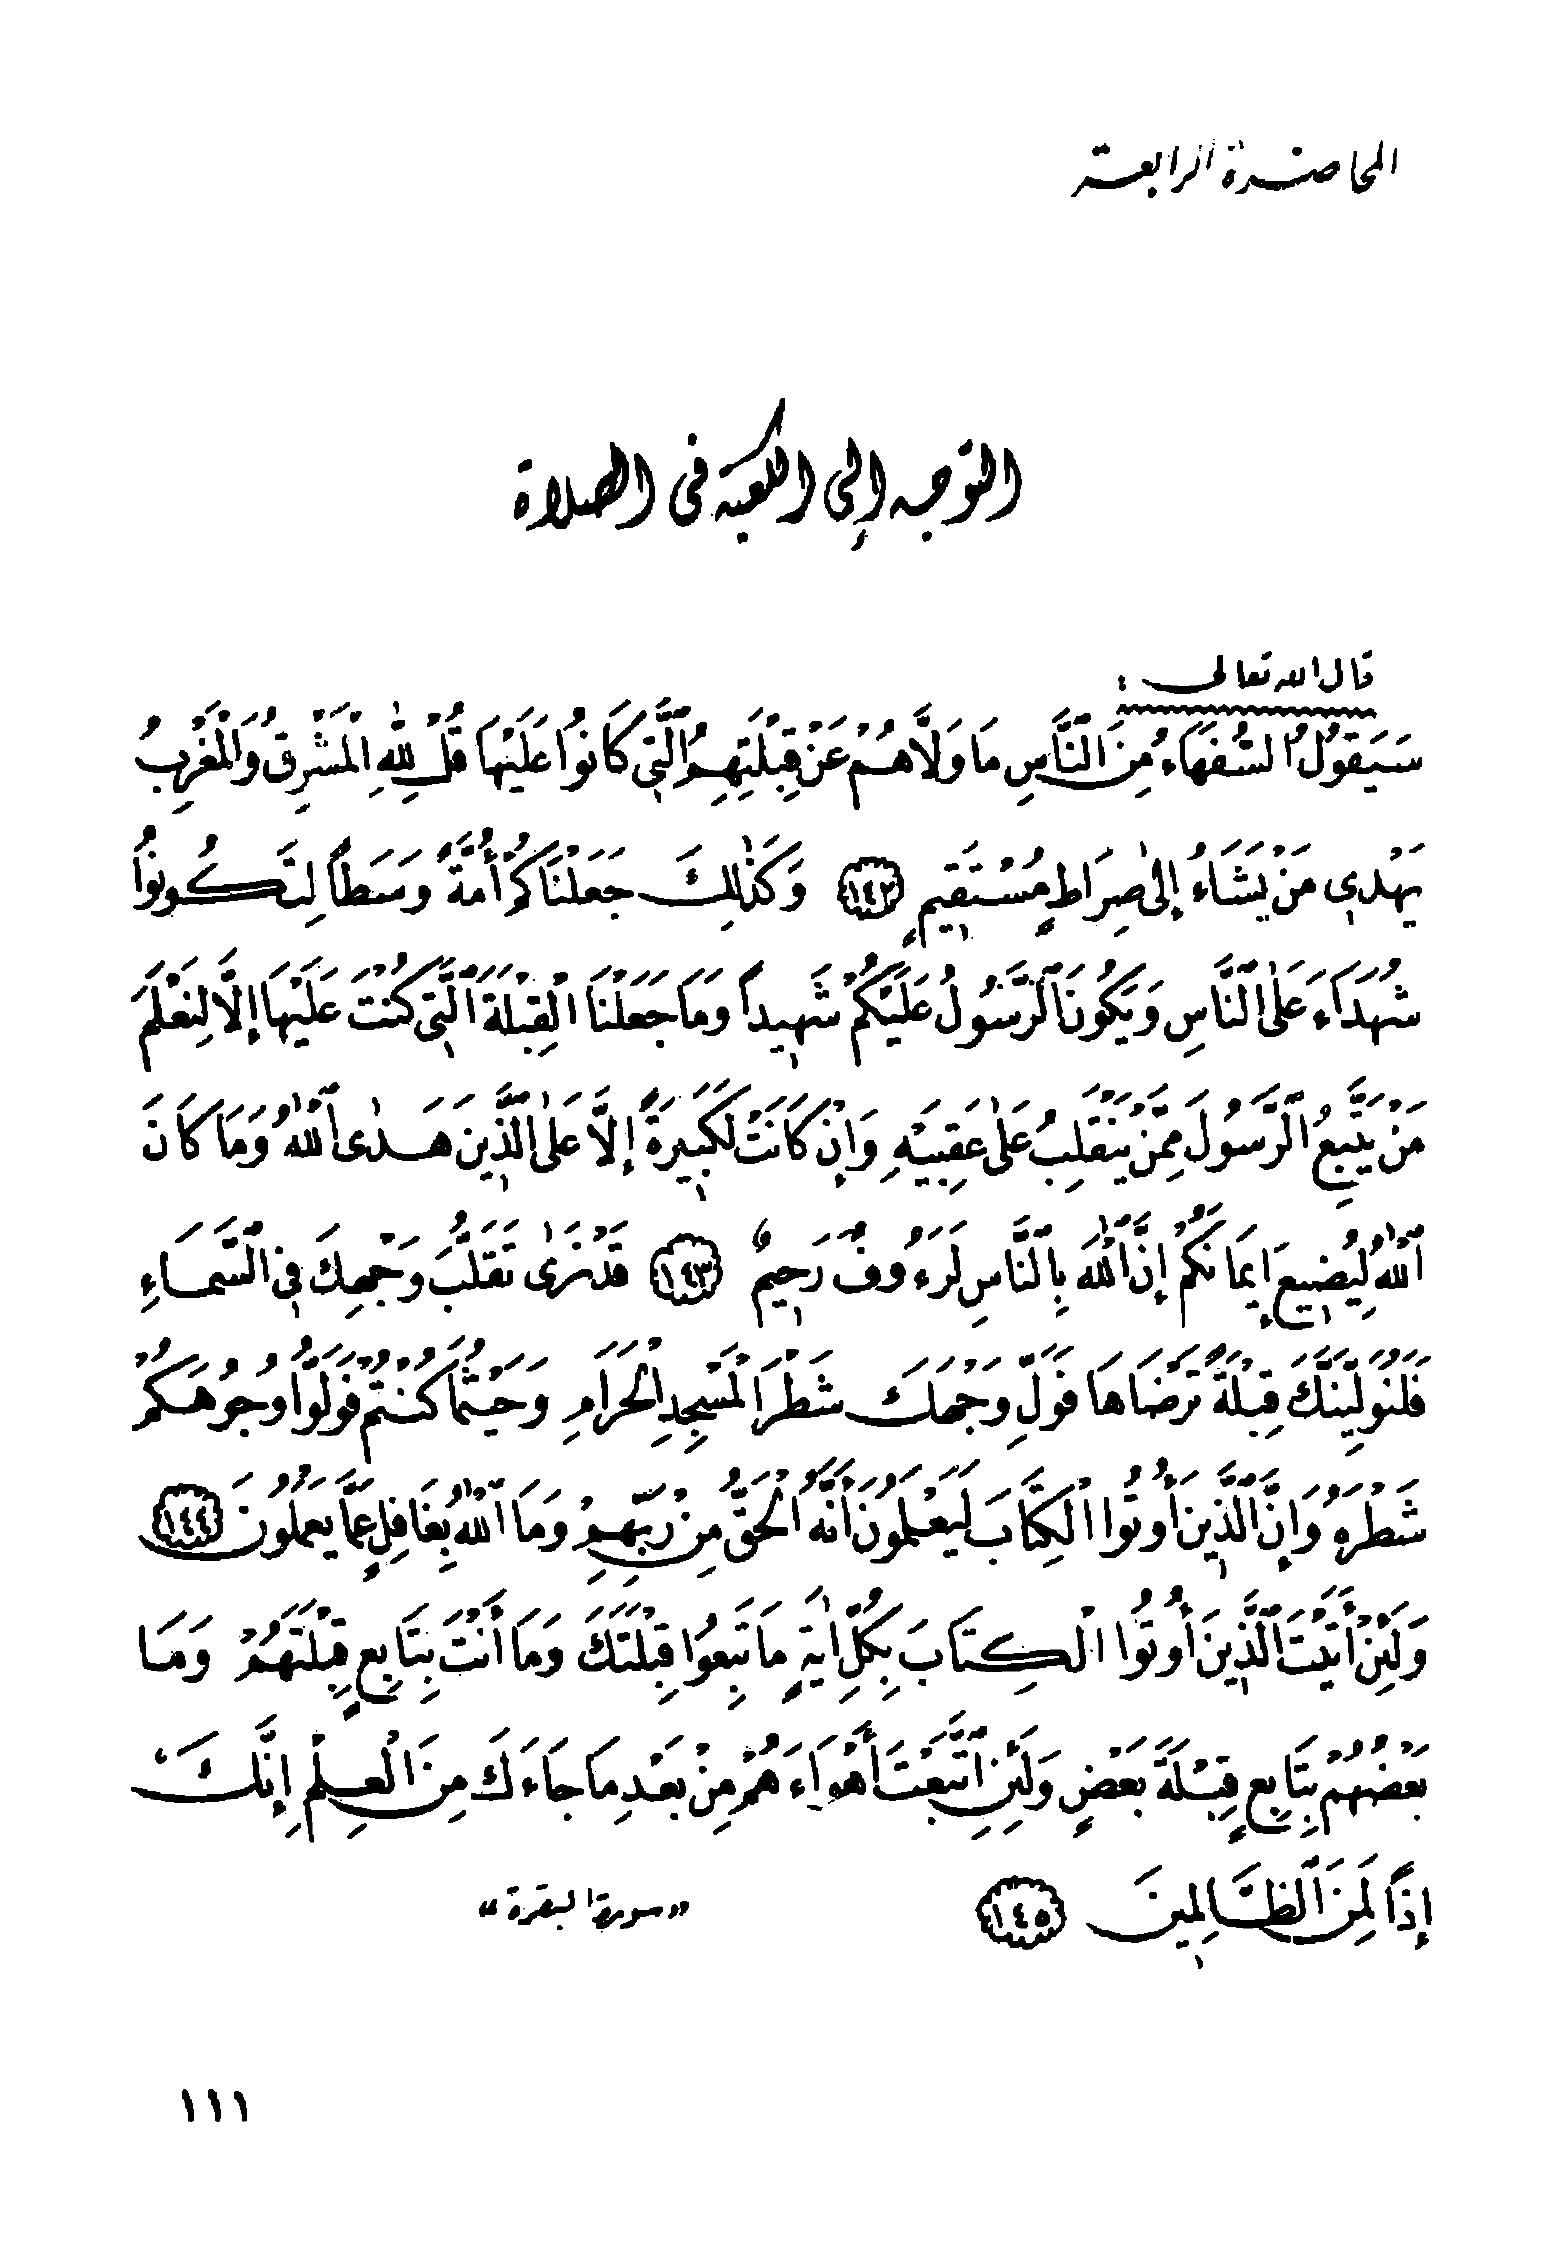 المحاضرة الرابعة
التوجه إلى الكعبة في الصلاة
قال الله تعالى :
سَيَقُولُ السُّفَهَاءُ مِنَ النَّاسِ مَا وَلَّاهُمْ عَنْ قِبْلَتِهِمُ الَّتِي كَانُوا عَلَيْهَا قُلْ لِلّٰهِ الْمَشْرِقُ وَالْمَغْرِبُ
يَهْدِي مَنْ يَشَاءُ إِلٰى صِرَاطٍ مُسْتَقِيمٍ ﴿١٤٢﴾ وَكَذٰلِكَ جَعَلْنَاكُمْ أُمَّةً وَسَطًا لِتَكُونُوا
شُهَدَاءَ عَلَى النَّاسِ وَيَكُونَ الرَّسُولُ عَلَيْكُمْ شَهِيدًا وَمَا جَعَلْنَا الْقِبْلَةَ الَّتِي كُنْتَ عَلَيْهَا إِلَّا لِنَعْلَمَ
مَنْ يَتَّبِعُ الرَّسُولَ مِمَّنْ يَنْقَلِبُ عَلٰى عَقِبَيْهِ وَإِنْ كَانَتْ لَكَبِيرَةً إِلَّا عَلَى الَّذِينَ هَدَى اللّٰهُ وَمَا كَانَ
اللّٰهُ لِيُضِيعَ إِيمَانَكُمْ إِنَّ اللّٰهَ بِالنَّاسِ لَرَءُوفٌ رَحِيمٌ ﴿١٤٣﴾ قَدْ نَرٰى تَقَلُّبَ وَجْهِكَ فِي السَّمَاءِ
فَلَنُوَلِّيَنَّكَ قِبْلَةً تَرْضَاهَا فَوَلِّ وَجْهَكَ شَطْرَ الْمَسْجِدِ الْحَرَامِ وَحَيْثُمَا كُنْتُمْ فَوَلُّوا وُجُوهَكُمْ
شَطْرَهُ وَإِنَّ الَّذِينَ أُوتُوا الْكِتَابَ لَيَعْلَمُونَ أَنَّهُ الْحَقُّ مِنْ رَبِّهِمْ وَمَا اللّٰهُ بِغَافِلٍ عَمَّا يَعْمَلُونَ ﴿١٤٤﴾
وَلَئِنْ أَتَيْتَ الَّذِينَ أُوتُوا الْكِتَابَ بِكُلِّ اٰيَةٍ مَا تَبِعُوا قِبْلَتَكَ وَمَا أَنْتَ بِتَابِعٍ قِبْلَتَهُمْ وَمَا
بَعْضُهُمْ بِتَابِعٍ قِبْلَةَ بَعْضٍ وَلَئِنِ اتَّبَعْتَ أَهْوَاءَهُمْ مِنْ بَعْدِ مَا جَاءَكَ مِنَ الْعِلْمِ إِنَّكَ
إِذًا لَمِنَ الظَّالِمِينَ ﴿١٤٥﴾ «سورة البقرة»
١١١